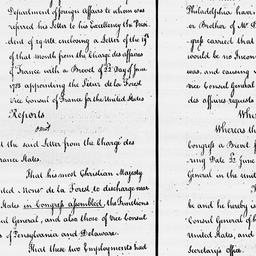 Department of foreign Affairs to whom was
referred his Letter to his Excellency the Presi
dent of 19 ult. enclosing a Letter of the 19th
of that month from the Chargé des affaires
of France with a Brevet of 22 Day of June
1785 appointing the Sieur de la Forest
vice Consul of France for the United States
Reports
the said Letter from the Chargé des
rance States.
That his most Christian Majesty
ded Monsr de la Forest to discharge near
States in Congress assembled, the Functions
ul General, and also those of vice Consul
s of Pennsylvania and Delaware.
That these two Employments had
Philadelphia have
er Brother of Mr
gress carried that
would be no Incon
was, and causing
vice Consul General
des affaires requests
Whereas th
Congress a Brevet
ring Date 22 June
General in the united
be and he hereby is
Consul General of
United States, and
Secretary's office.